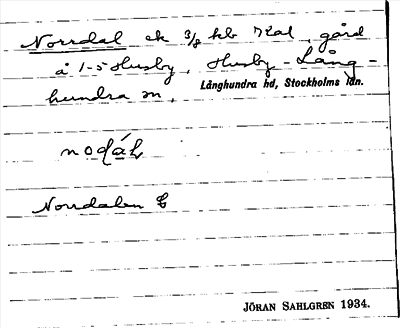 Norrdal ek 3/8 hb Kat, gård
å 1-5 Husby, Husby-Lång-
hundra sn,
Långhundra hd, Stockholms län.
nodál
Norrdalen E
JÖRAN SAHLGREN 1934.